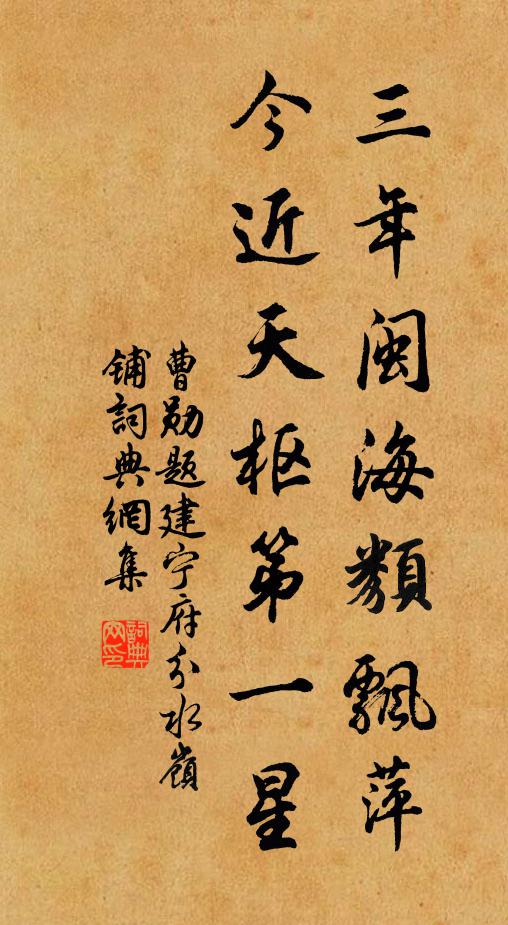 三年闽海類飄萍
今近天枢第一星
曹勋題建宁府分水嶺
铺詞典網集
詞典网印